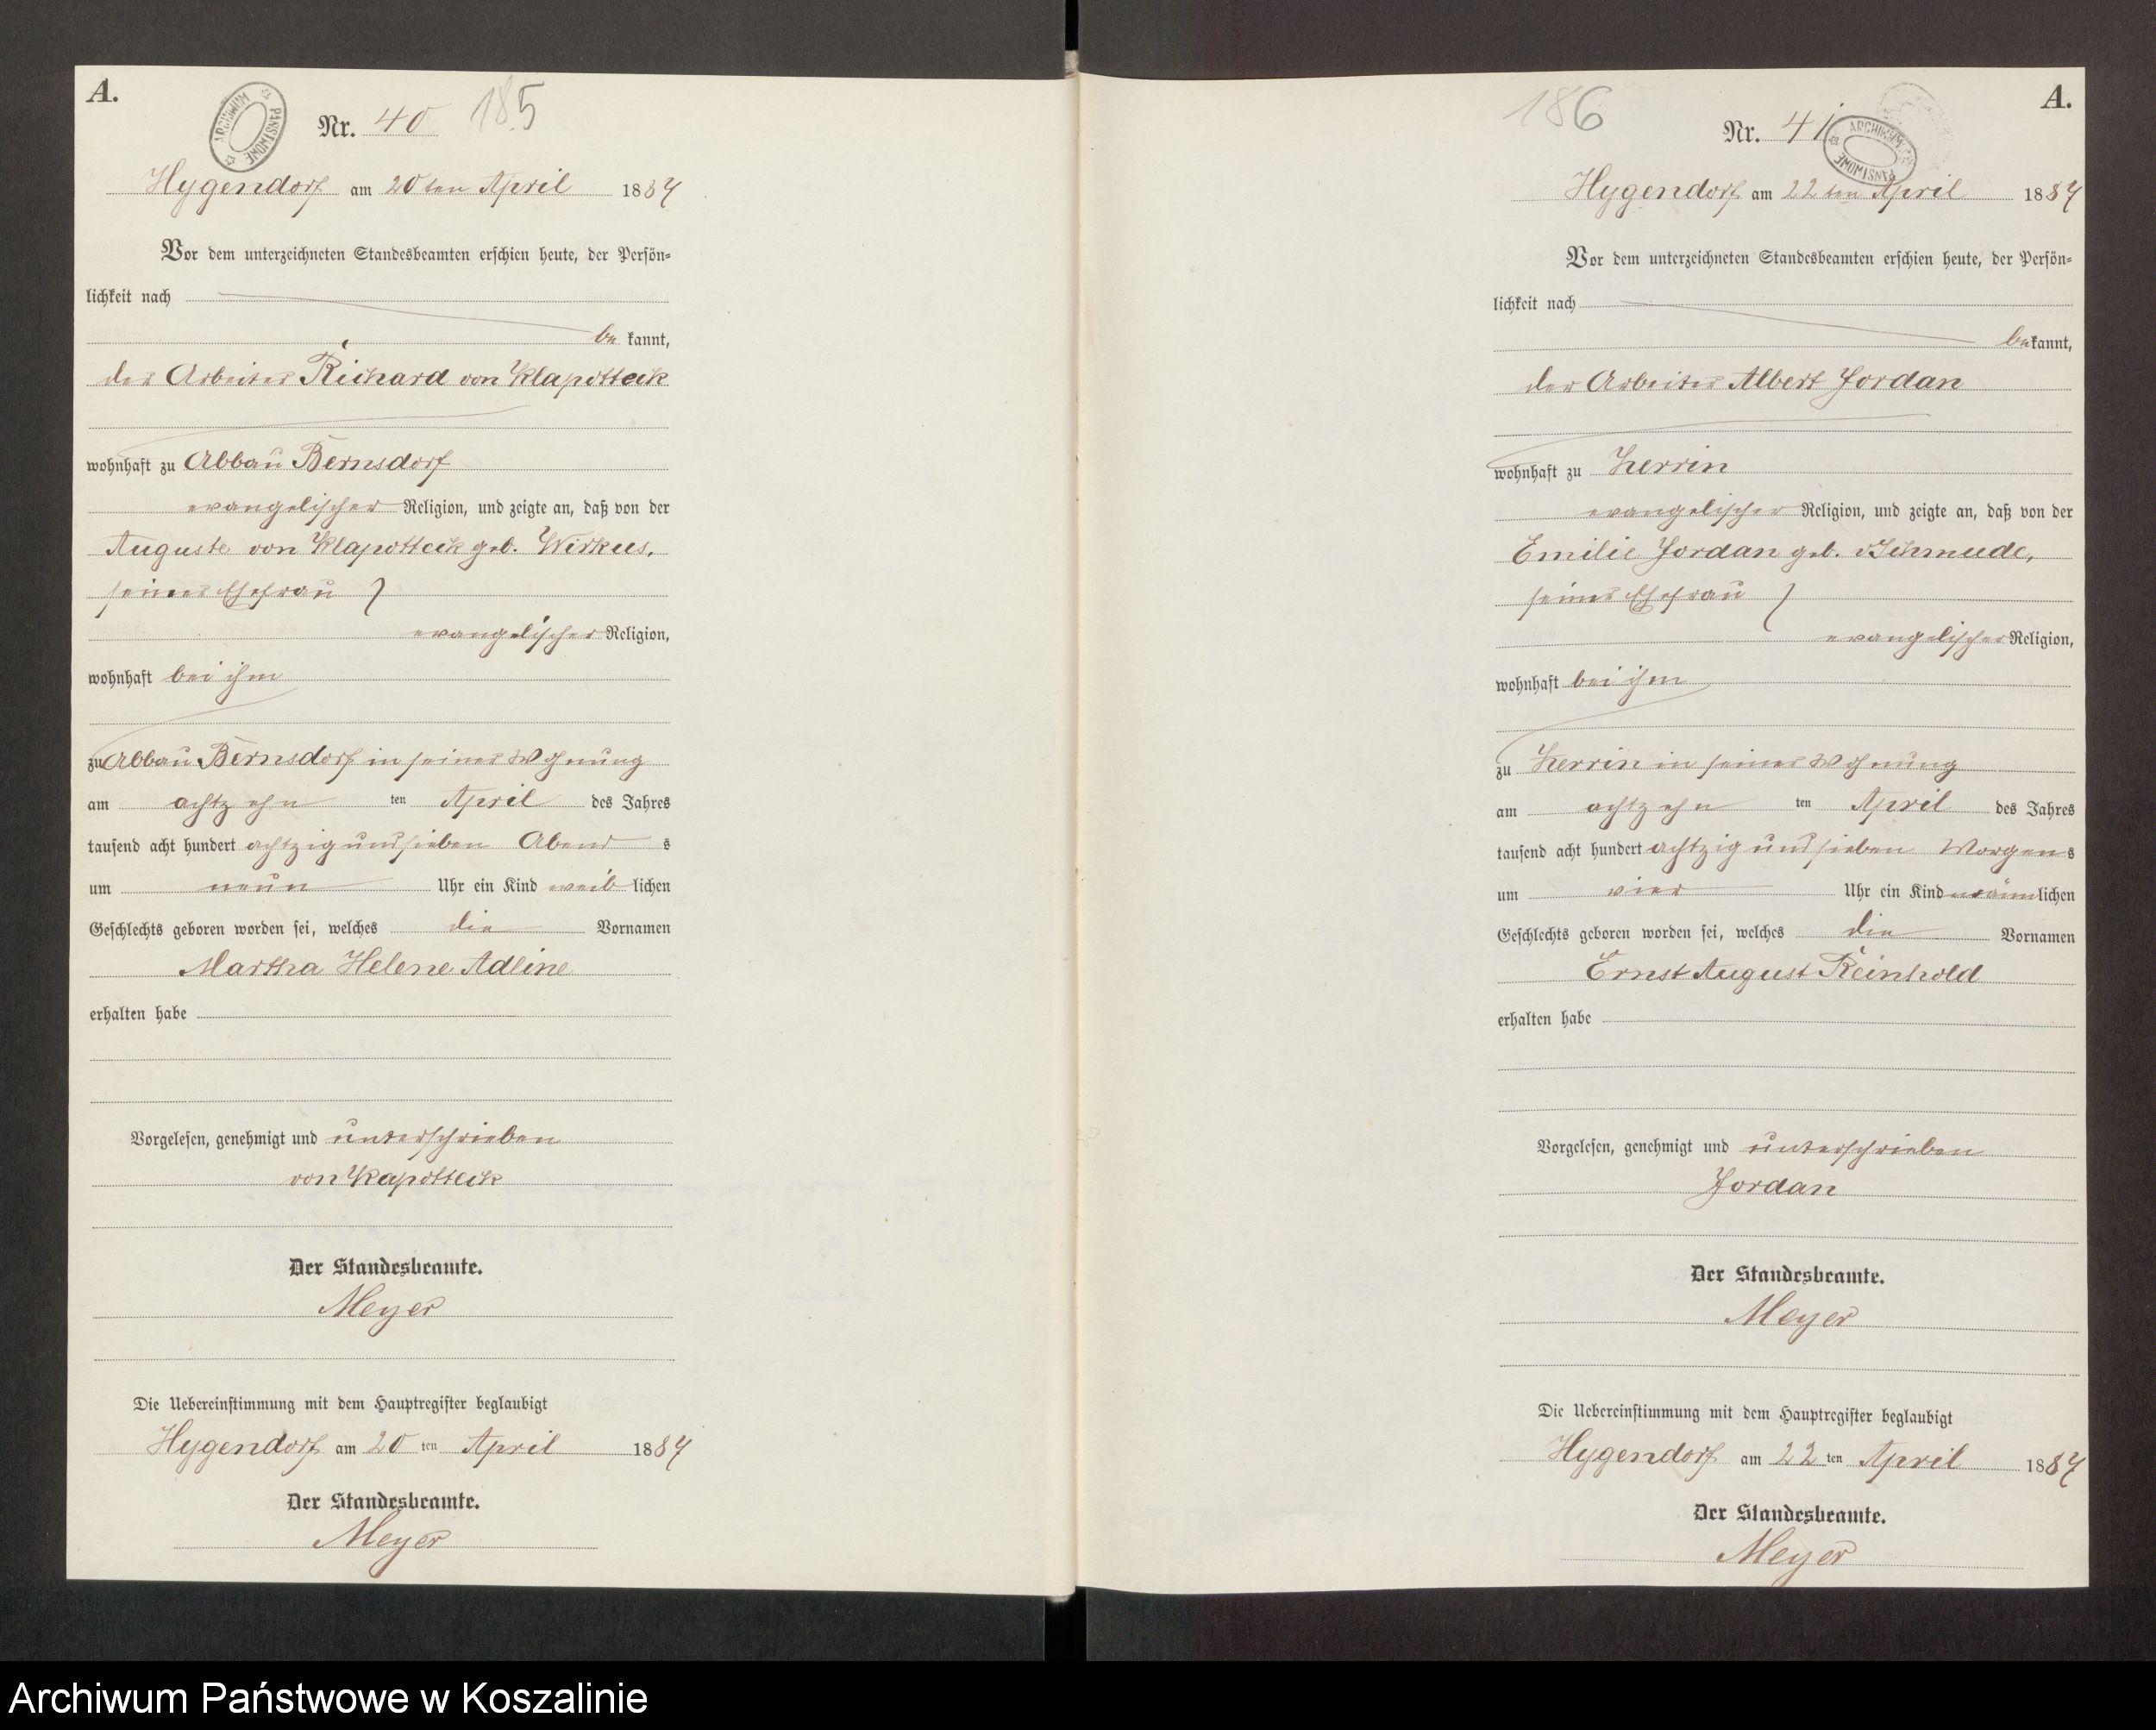 A.
ARCHIWUM PAŃSTWOWE
Nr. 40 185
Hygendorf am 20ten April 1887
Vor dem unterzeichneten Standesbeamten erschien heute, der Persön-
lichkeit nach
be kannt,
der Arbeiter Richard von Klapotteck
wohnhaft zu Abbau Bernsdorf
evangelischer Religion, und zeigte an, daß von der
Auguste von Klapotteck geb. Wirkus,
seiner Ehefrau
evangelischer Religion,
wohnhaft bei ihm
zu Abbau Bernsdorf in seiner Wohnung
am achtzehn ten April des Jahres
tausend acht hundert achtzig und sieben Abend s
um neun Uhr ein Kind weib lichen
Geschlechts geboren worden sei, welches die Vornamen
Martha Helene Adline
erhalten habe
Vorgelesen, genehmigt und unterschrieben
von Kapotteck
Der Standesbeamte.
Meyer
Die Uebereinstimmung mit dem Hauptregister beglaubigt
Hygendorf am 20 ten April 1887
Der Standesbeamte.
Meyer
186 A.
Nr. 41
ARCHIWUM PAŃSTWOWE
Hygendorf am 22ten April 1887
Vor dem unterzeichneten Standesbeamten erschien heute, der Persön-
lichkeit nach
be kannt,
der Arbeiter Albert Jordan
wohnhaft zu Zerrin
evangelischer Religion, und zeigte an, daß von der
Emilie Jordan geb. Schmude,
seiner Ehefrau
evangelischer Religion,
wohnhaft bei ihm
zu Zerrin in seiner Wohnung
am achtzehn ten April des Jahres
tausend acht hundert achtzig und sieben Morgen s
um vier Uhr ein Kind männ lichen
Geschlechts geboren worden sei, welches die Vornamen
Ernst August Reinhold
erhalten habe
Vorgelesen, genehmigt und unterschrieben
Jordan
Der Standesbeamte.
Meyer
Die Uebereinstimmung mit dem Hauptregister beglaubigt
Hygendorf am 22 ten April 1887
Der Standesbeamte.
Meyer
Archiwum Państwowe w Koszalinie